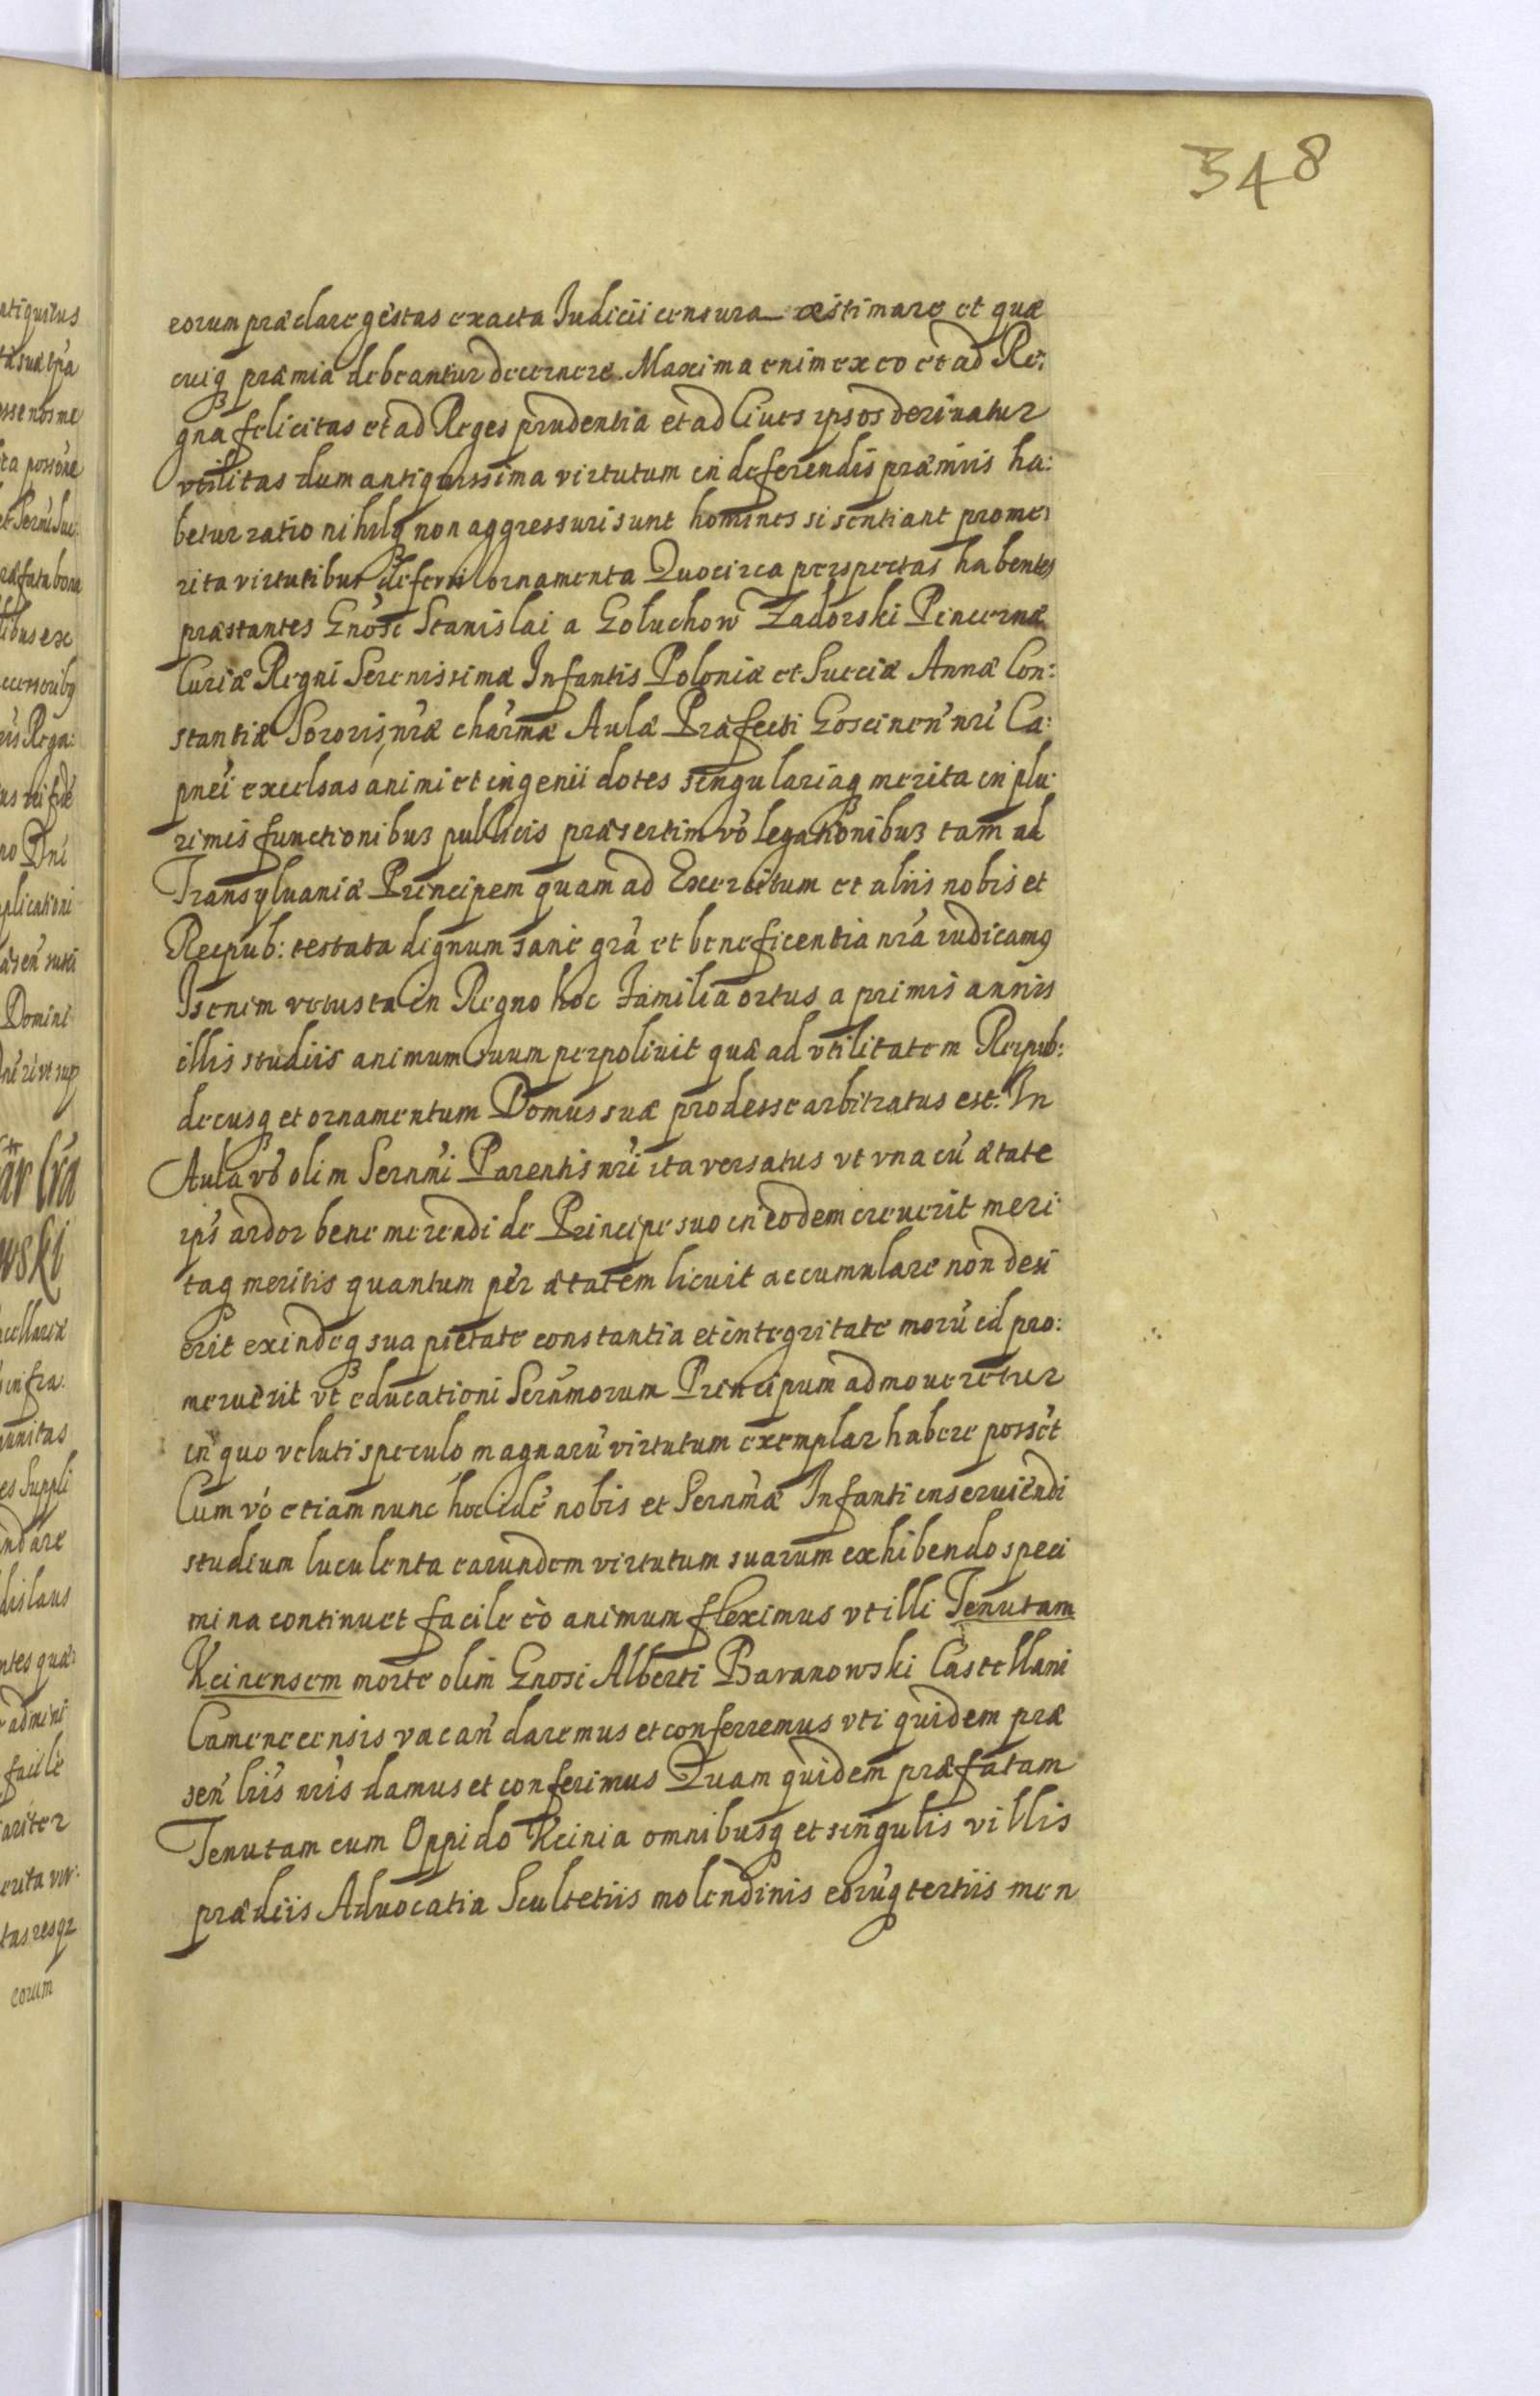 348
eorum præclare gestas exacta Iudicii censura æstimare et quæ
cuiq præmia debeantur decernere. Maxima enim ex eo et ad Re:
gna felicitas et ad Reges prudentia et ad Ciues ipsos deriuatur
vtilitas dum antiquissima virtutum in deferendis præmiis ha:
betur ratio nihilq non aggressuri sunt homines si sentiant prome:
rita virtutibus deferri ornamenta Quocirca perspectas habentes
præstantes Gnosi Stanislai a Goluchow Zadorski Pincernæ
Curiæ Regni Serenissimæ Infantis Poloniæ et Sueciæ Annæ Con:
stantiæ Sororis nræ charmæ Aulæ Præfecti Goscinen nri Ca:
pnei excelsas animi et ingenii dotes singulariaq merita in plu
rimis functionibus publicis præsertim vo legationibus tam ad
Transyluaniæ Principem quam ad Exercitum et aliis nobis et
Reipub: testata dignum sane gra et beneficentia nra iudicamus
Is enim vetusta in Regno hoc Familia ortus a primis annis
illis studiis animum suum perpoliuit quæ ad vtilitatem Reipub:
decusq et ornamentum Domus suæ prodesse arbitratus est. In
Aula vo olim Sernmi Parentis nri ita versatus vt vna cu ætate
ips ardor bene merendi de Principe suo in eodem creuerit meri
taq meritis quantum per ætatem licuit accumulare non desi
erit exindeq sua pietate constantia et integritate moru id pro:
meruerit vt educationi Sernmorum Principum admoueretur
in quo veluti speculo magnaru virtutum exemplar habere posset
Cum vo etiam nunc hoc ide nobis et Sernmæ Infanti inseruiendi
studium luculenta earundem virtutum suarum exhibendo speci
mina continuet facile eo animum fleximus vt illi Tenutam
Kcinensem morte olim Gnosi Alberti Baranowski Castellani
Camenecensis vacan daremus et conferremus vti quidem præ
sen lris nris damus et conferimus Quam quidem præfatam
Tenutam cum Oppido Kcinia omnibusq et singulis villis
prædiis Aduocatia Scultetiis molendinis eoruq tertiis men